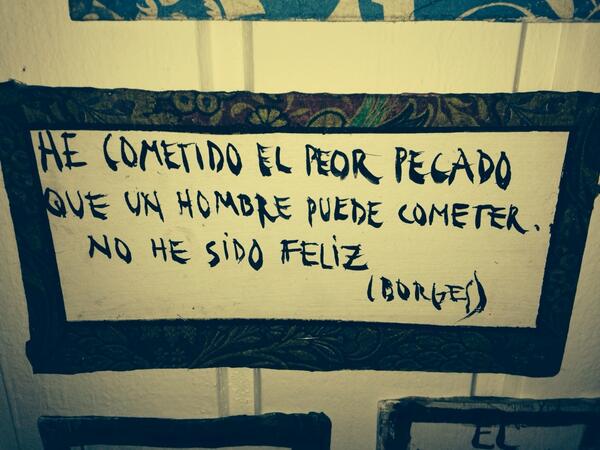 HE COMETIDO EL PEOR PECADO
QUE UN HOMBRE PUEDE COMETER.
NO HE SIDO FELIZ
(BORGES)
EL